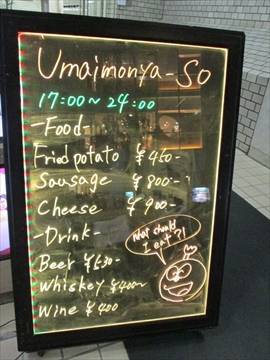 Umaimonya-So
17:00~24:00
-Food-
Fried potato ¥460-
Sausage ¥800-
Cheese ¥900-
-Drink-
Beer ¥630-
Whiskey ¥400~
Wine ¥400
What should
I eat?!